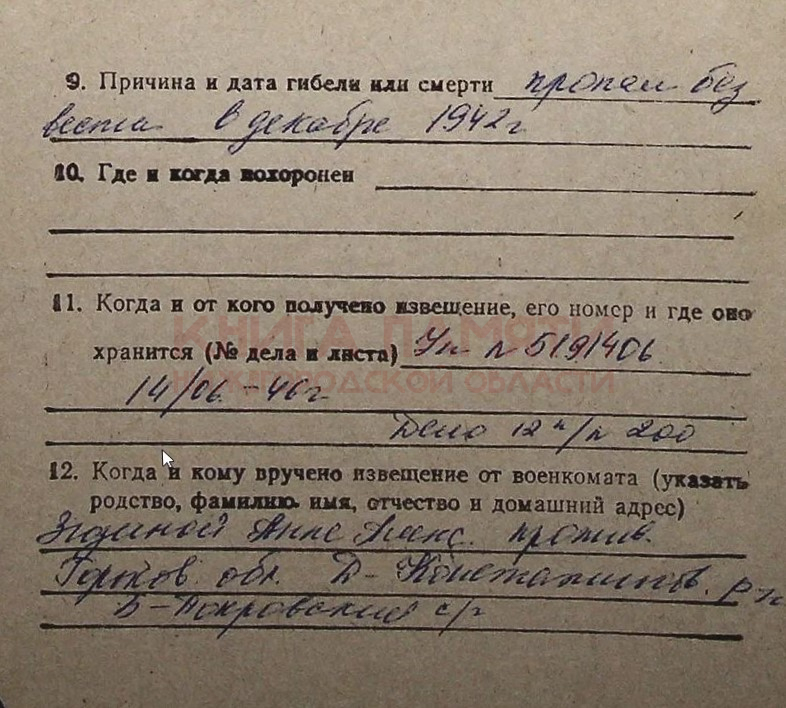 9. Причина и дата гибели или смерти пропал без
вести в декабре 1942 г
10. Где и когда похоронен
11. Когда и от кого получено извещение, его номер и где оно
КНИГА ПАМЯТИ
хранится (№ дела и листа) Уп №5191406
НИЖЕГОРОДСКОЙ ОБЛАСТИ
14/06 - 46 г
Дело 12 п/п 200
12. Когда и кому вручено извещение от военкомата (указать
родство, фамилию, имя, отчество и домашний адрес)
Анне Алекс. прожив.
Горьков. обл. Д-Константинов. р-н
Б-Покровский с/с